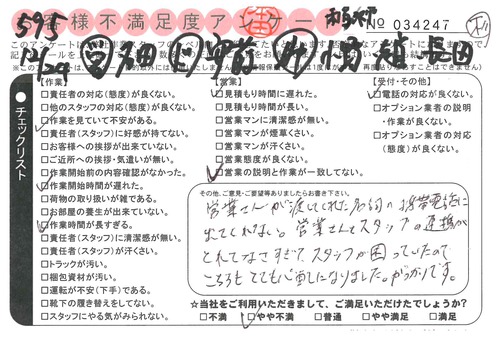 お客様不満足度アンケート
No 034247
595
12/24
チェックリスト
【作業】
□責任者の対応(態度)が良くない。
□他のスタッフの対応(態度)が良くない。
□作業を見ていて不安がある。
□責任者(スタッフ)に好感が持てない。
□お客様への挨拶が出来ていない。
□ご近所への挨拶・気遣いが無い。
□作業開始前の内容確認がなかった。
□作業開始時間が遅れた。
□荷物の取り扱いが雑である。
□お部屋の養生が出来ていない。
□作業時間が長すぎる。
□責任者(スタッフ)に清潔感が無い。
□責任者(スタッフ)が汗くさい。
□トラックが汚い。
□梱包資材が汚い。
□運転が不安(下手)である。
□靴下の履き替えをしてない。
□スタッフにやる気がみられない。
【営業】
□見積もり時間に遅れた。
□見積もり時間が長い。
□営業マンに清潔感が無い。
□営業マンが煙草くさい。
□営業マンが汗くさい。
□営業態度が良くない。
□営業の説明と作業が一致してない。
【受付・その他】
□電話の対応が良くない。
□オプション業者の説明
・作業が良くない。
□オプション業者の対応
(態度)が良くない。
その他、ご意見・ご要望等ありましたらお書き下さい。
営業さんが渡してくれた名刺の携帯電話に
出てくれない。営業さんとスタッフの連携が
とれてなさすぎて、スタッフが困っていたので
こちらもとても心配になりました。がっかりです。
☆当社をご利用いただきまして、ご満足いただけたでしょうか?
□不満 □やや不満 □普通 □やや満足 □満足